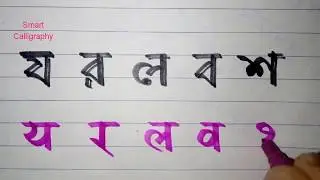 Smart
Calligraphy
য র ল ব শ
य र ल व